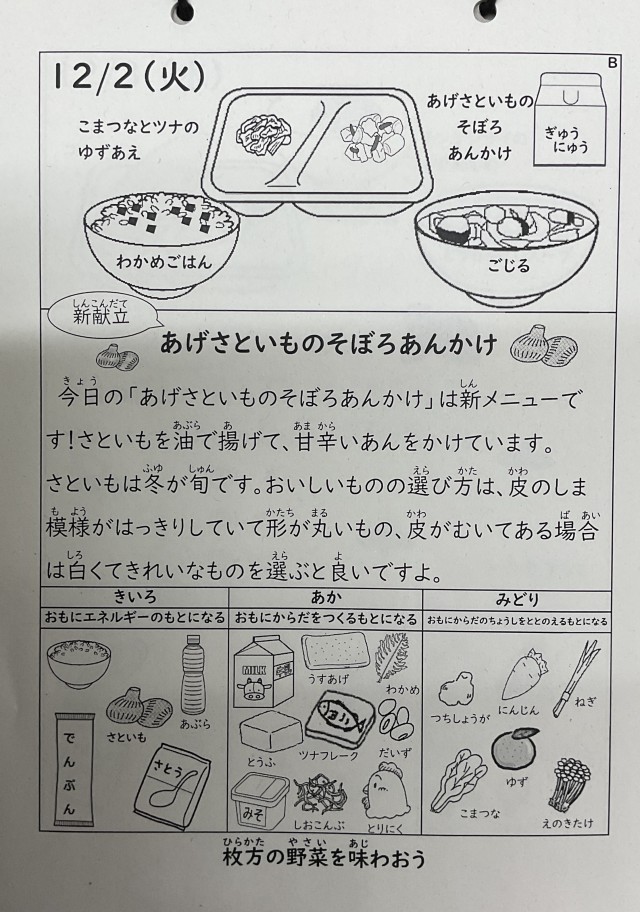 B
12/2(火)
こまつなとツナの
ゆずあえ
あげさといもの
そぼろ
あんかけ
ぎゅう
にゅう
わかめごはん
ごじる
しんこんだて
新献立
あげさといものそぼろあんかけ
きょう しん
今日の「あげさといものそぼろあんかけ」は新メニューで
あぶら あ あま から
す!さといもを油で揚げて、甘辛いあんをかけています。
ふゆ しゅん えら かた かわ
さといもは冬が旬です。おいしいものの選び方は、皮のしま
も よう かたち まる かわ ば あい
模様がはっきりしていて形が丸いもの、皮がむいてある場合
しろ えら よ
は白くてきれいなものを選ぶと良いですよ。
きいろ
おもにエネルギーのもとになる
さといも
あぶら
でんぷん
さとう
あか
おもにからだをつくるもとになる
MILK
うすあげ
わかめ
とうふ
ツナフレーク
だいず
みそ
しおこんぶ
とりにく
みどり
おもにからだのちょうしをととのえるもとになる
つちしょうが
にんじん
ねぎ
こまつな
ゆず
えのきたけ
ひらかた やさい あじ
枚方の野菜を味わおう